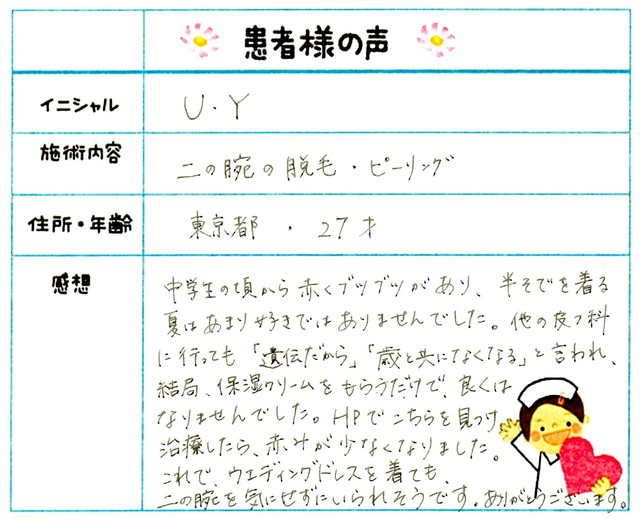 患者様の声
イニシャル
U・Y
施術内容
二の腕の脱毛・ピーリング
住所・年齢
東京都 ・ 27才
感想
中学生の頃から赤くブツブツがあり、半そでを着る
夏はあまり好きではありませんでした。他の皮フ科
に行っても「遺伝だから」「歳と共になくなる」と言われ、
結局、保湿クリームをもらうだけで、良くは
なりませんでした。HPでこちらを見つけ、
治療したら、赤みが少なくなりました。
これで、ウエディングドレスを着ても、
二の腕を気にせずにいられそうです。ありがとうございます。